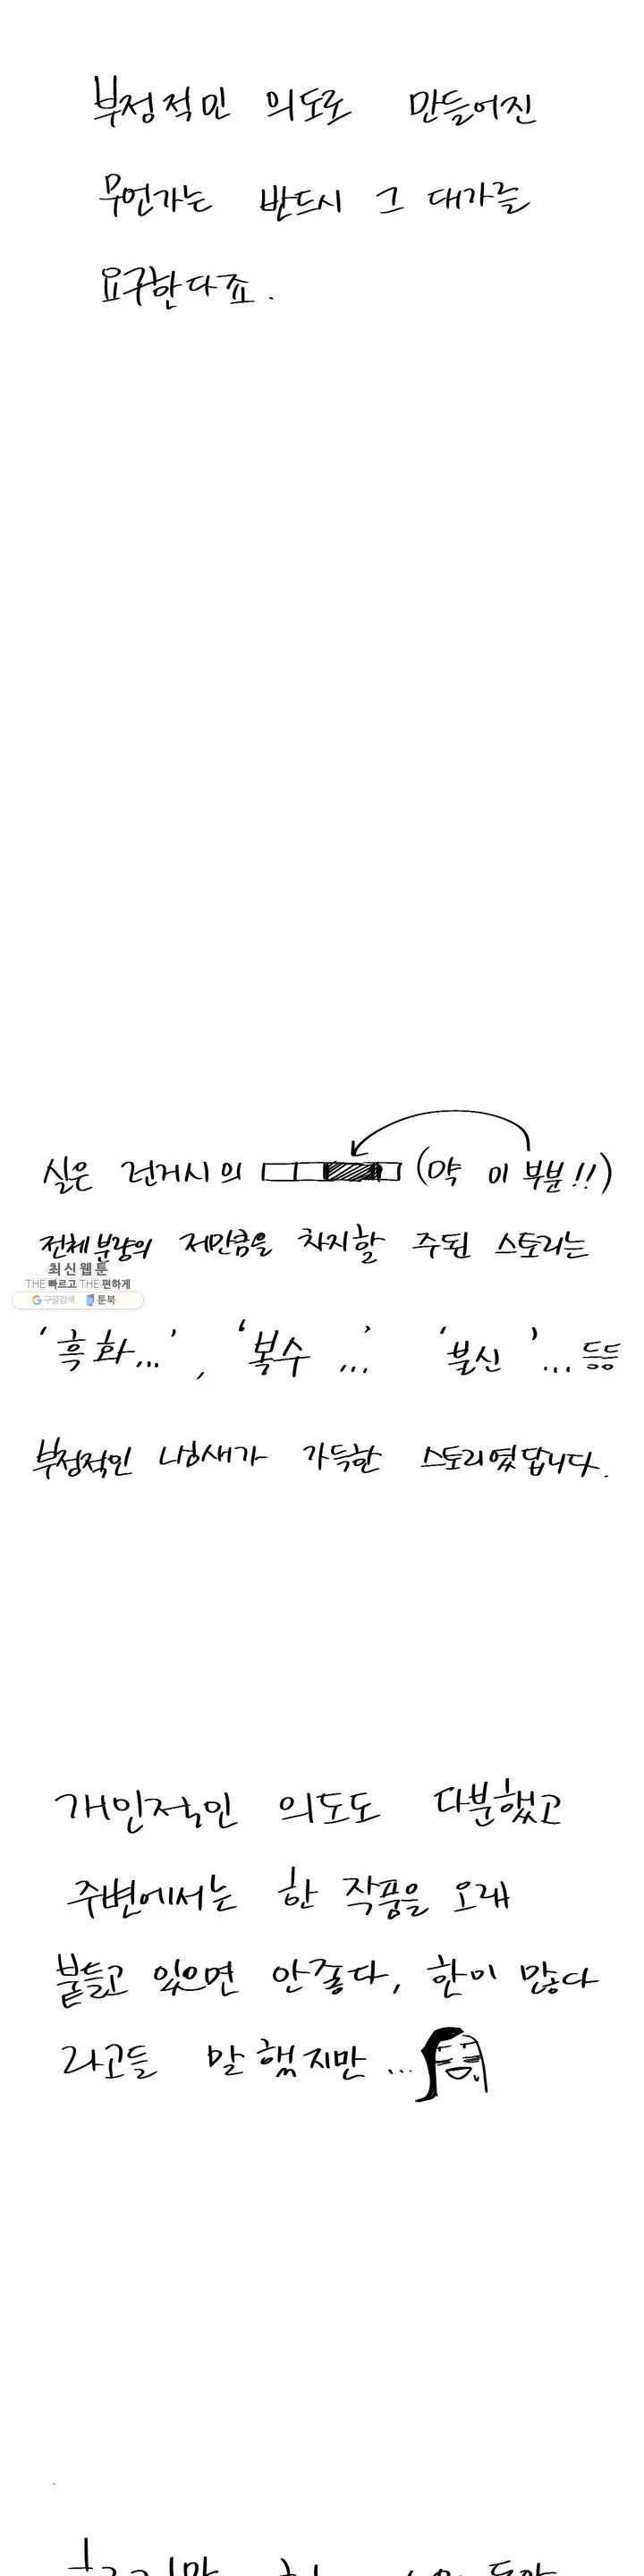 부정적인 의도로 만들어진
무언가는 반드시 그 대가를
요구한다죠.
실은 런거시의 (약 이 부분!!)
전체 분량의 저만큼을 차지할 주된 스토리는
최신웹툰
THE 빠르고 THE 편하게
구글검색 툰북
'흑화...', '복수...' '불신'... 등등
부정적인 냄새가 가득한 스토리였답니다.
개인적인 의도도 다분했고
주변에서는 한 작품을 오래
붙들고 있으면 안좋다, 한이 많다
라고들 말했지만...